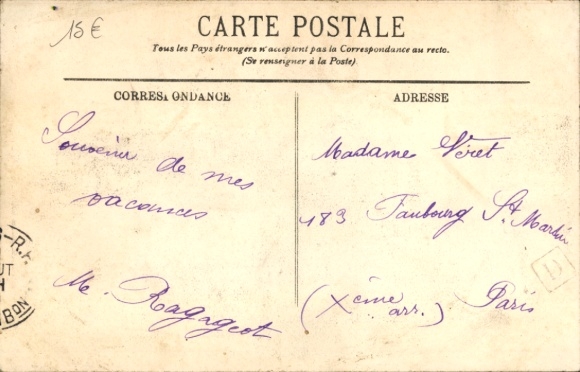 15€
CARTE POSTALE
Tous les Pays étrangers n'acceptent pas la Correspondance au recto.
(Se renseigner à la Poste)
CORRESPONDANCE
Souvenir de mes
vacances
M. Ragageot
ADRESSE
Madame Véret
183 Faubourg St Martin
(Xème arr.) Paris
D